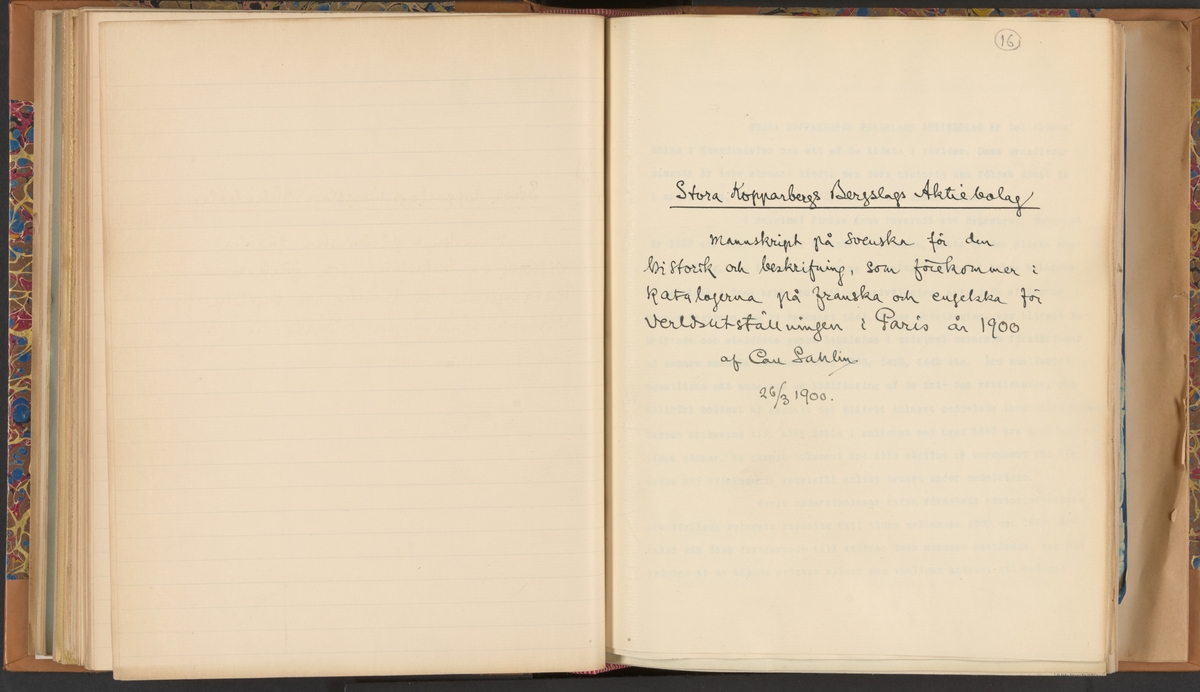 16
Stora Kopparbergs Bergslags Aktiebolag
Manuskript på Svenska för den
historik och beskrifning, som förekommer i
Katalogerna på franska och engelska för
Verldsutställningen i Paris år 1900
af Carl Sahlin
26/3 1900.